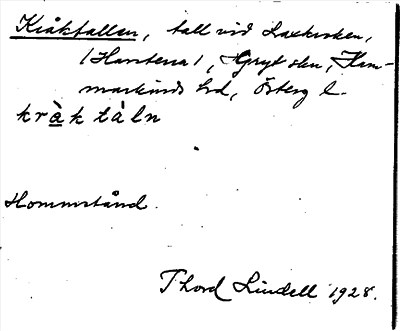 Kråktallen, tall vid Laxkroken,
(Harstena), Gryt skn, Ham-
markinds hd, Österg l.
kràk tàln
Hommstånd.
Thord Lindell 1928.